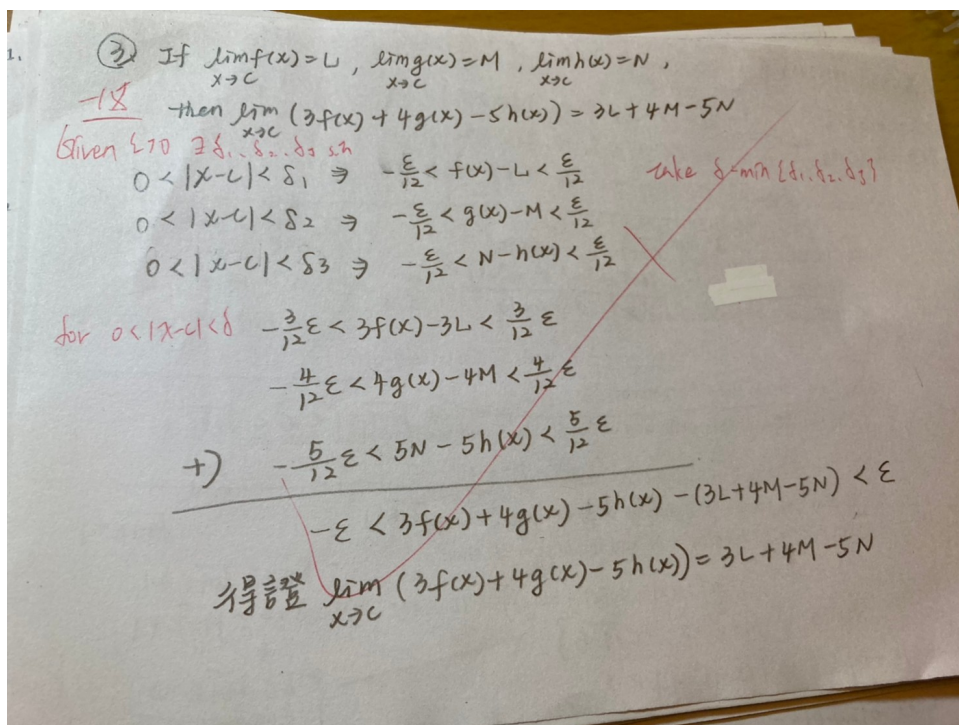 1.
③ If lim f(x)=L, lim g(x)=M, lim h(x)=N,
x→c x→c x→c
then lim (3f(x)+4g(x)-5h(x)) = 3L+4M-5N
x→c
Given ε>0 ∃ δ₁, δ₂, δ₃ s.t.
0<|x-c|<δ₁ ⇒ -ε/12 < f(x)-L < ε/12 take δ=min{δ₁,δ₂,δ₃}
0<|x-c|<δ2 ⇒ -ε/12 < g(x)-M < ε/12
0<|x-c|<δ3 ⇒ -ε/12 < N-h(x) < ε/12
for 0<|x-c|<δ -3/12 ε < 3f(x)-3L < 3/12 ε
-4/12 ε < 4g(x)-4M < 4/12 ε
+) -5/12 ε < 5N-5h(x) < 5/12 ε
-ε < 3f(x)+4g(x)-5h(x)-(3L+4M-5N) < ε
得證 lim (3f(x)+4g(x)-5h(x)) = 3L+4M-5N
x→c